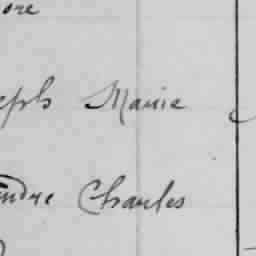 ore
eph Marie
andre Charles